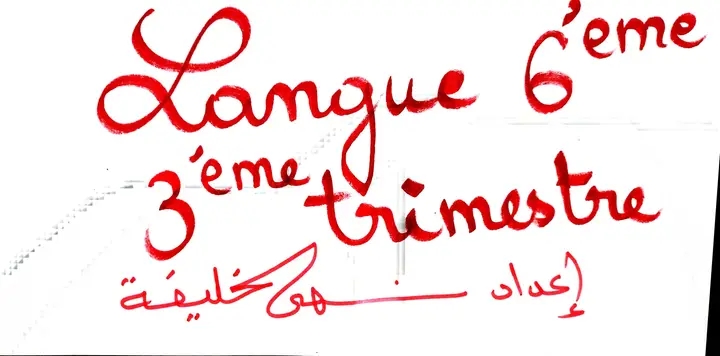 Langue 6ème
3ème trimestre
إعداد نهى خليفة